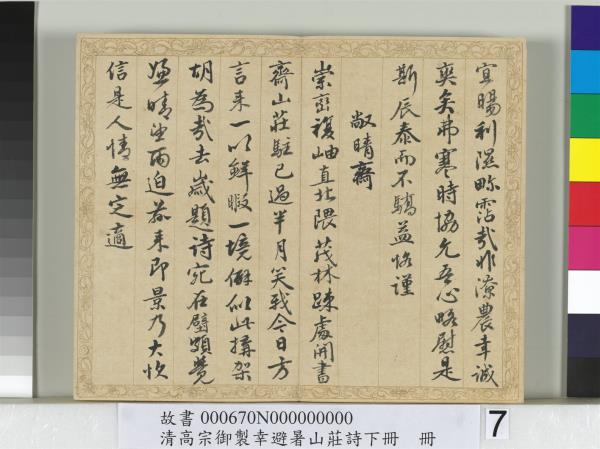 宜暘利滋畛霑哉非潦農幸誠
爽矣弗寒時協允吾心略慰是
斯辰泰而不驕益恪謹
敞晴齋
崇巒複岫直北隈茂林疎處開書
齋山莊駐已過半月笑我今日方
言来一以鮮暇一境僻似此搆架
胡為哉去嵗題詩宛在壁頗覺
嬿晴望雨迫茲来即景乃大快
信是人情無定適
故書 000670N000000000
清高宗御製幸避暑山莊詩下冊 冊
7